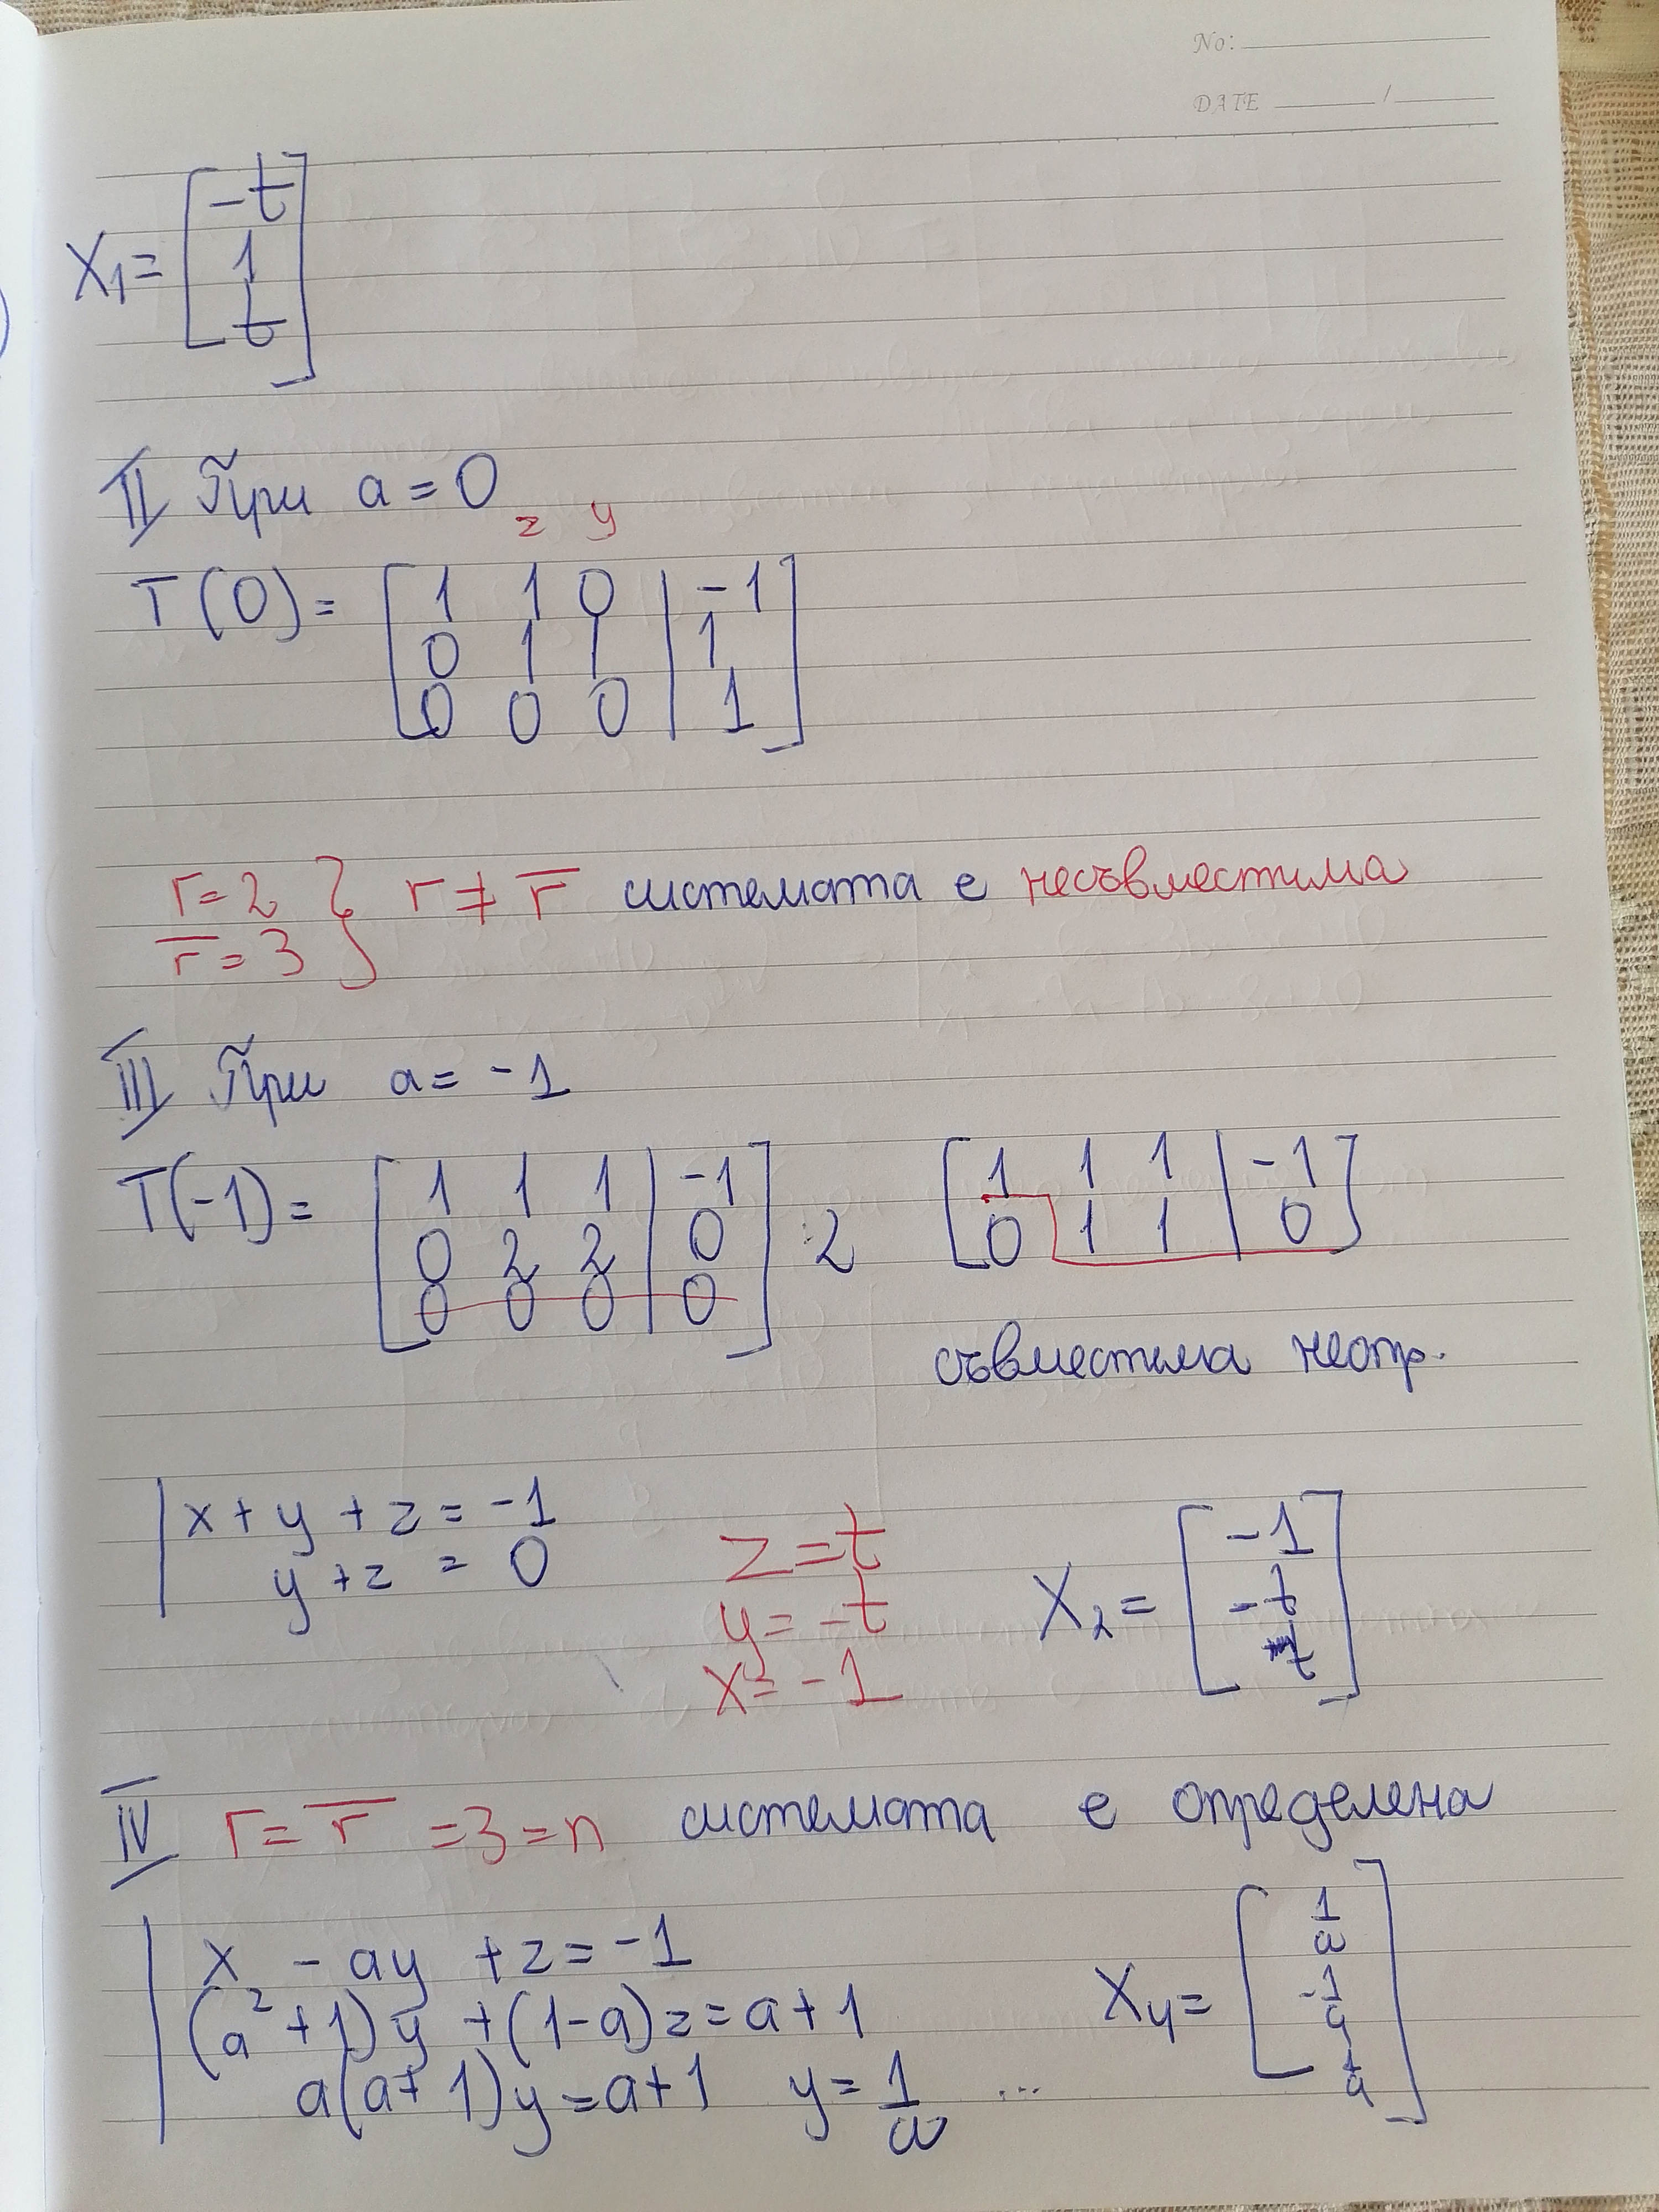 No:
DATE /
X₁ = [ -t
1
t ]
II При a = 0
z y
T(0) = [ 1 1 0 | -1
0 1 1 | 1
0 0 0 | 1 ]
r = 2 } r ≠ r̅ системата е несъвместима
r̅ = 3
III При a = -1
T(-1) = [ 1 1 1 | -1 [ 1 1 1 | -1
0 2 2 | 0 ] :2 0 1 1 | 0 ]
0 0 0 | 0
съвместима неопр.
| x + y + z = -1
y + z = 0
z = t
y = -t
x = -1
X₂ = [ -1
-t
t ]
IV r = r̅ = 3 = n системата е определена
| x - ay + z = -1
(a² + 1)y + (1 - a)z = a + 1
a(a + 1)y = a + 1 y = 1/a ...
X₄ = [ 1/a
-1/a
1/a ]